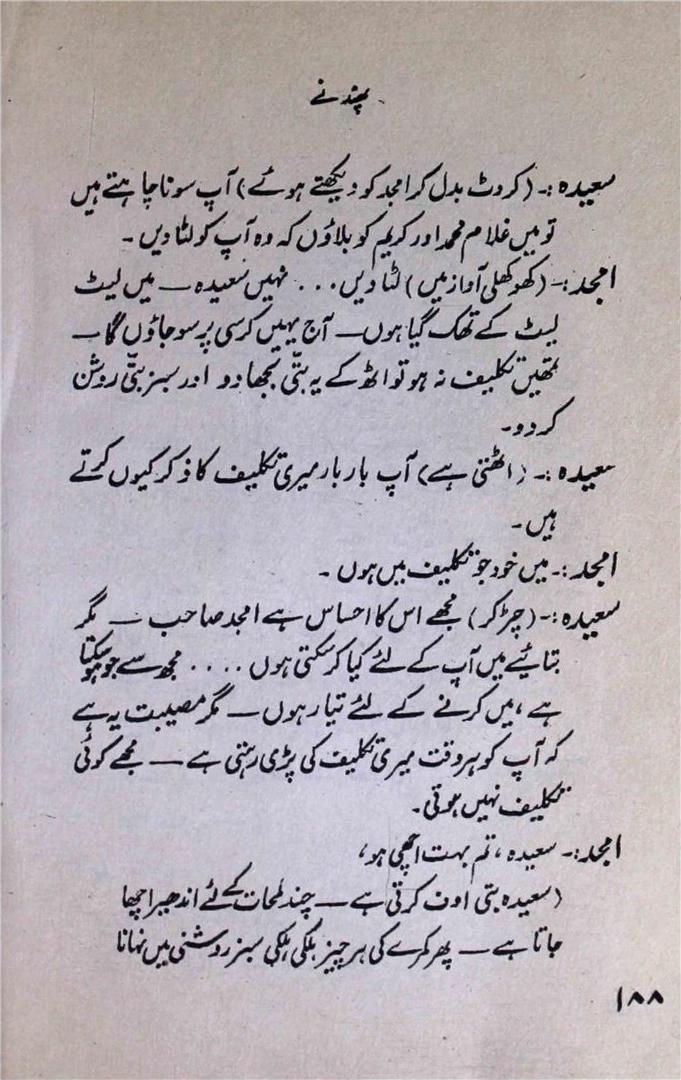 پھندنے
سعیدہ :۔ (کروٹ بدل کر امجد کو دیکھتے ہوئے) آپ سونا چاہتے ہیں
تو میں غلام محمد اور کریم کو بلاؤں کہ وہ آپ کو لٹا دیں ۔
امجد :۔ (کھوکھلی آواز میں) لٹا دیں . . . نہیں سعیدہ ــ میں لیٹ
لیٹ کے تھک گیا ہوں ــ آج یہیں کرسی پر سو جاؤں گا ــ
تمھیں تکلیف نہ ہو تو اٹھ کے یہ بتّی بجھا دو اور سبز بتّی روشن
کر دو۔
سعیدہ :۔ (اٹھتی ہے) آپ بار بار میری تکلیف کا ذکر کیوں کرتے
ہیں۔
امجد :۔ میں خود جو تکلیف میں ہوں ۔
سعیدہ :۔ (چڑ کر) مجھے اس کا احساس ہے امجد صاحب ــ مگر
بتائیے میں آپ کے لئے کیا کر سکتی ہوں . . . . مجھ سے جو ہو سکتا
ہے ، میں کرنے کے لئے تیار ہوں ــ مگر مصیبت یہ ہے
کہ آپ کو ہر وقت میری تکلیف کی پڑی رہتی ہے ــ مجھے کوئی
تکلیف نہیں ہوتی۔
امجد :۔ سعیدہ ، تم بہت اچھی ہو ،
(سعیدہ بتی اوف کرتی ہے ــ چند لمحات کے لئے اندھیرا چھا
جاتا ہے ــ پھر کمرے کی ہر چیز ہلکی ہلکی سبز روشنی میں نہانا
۱۸۸